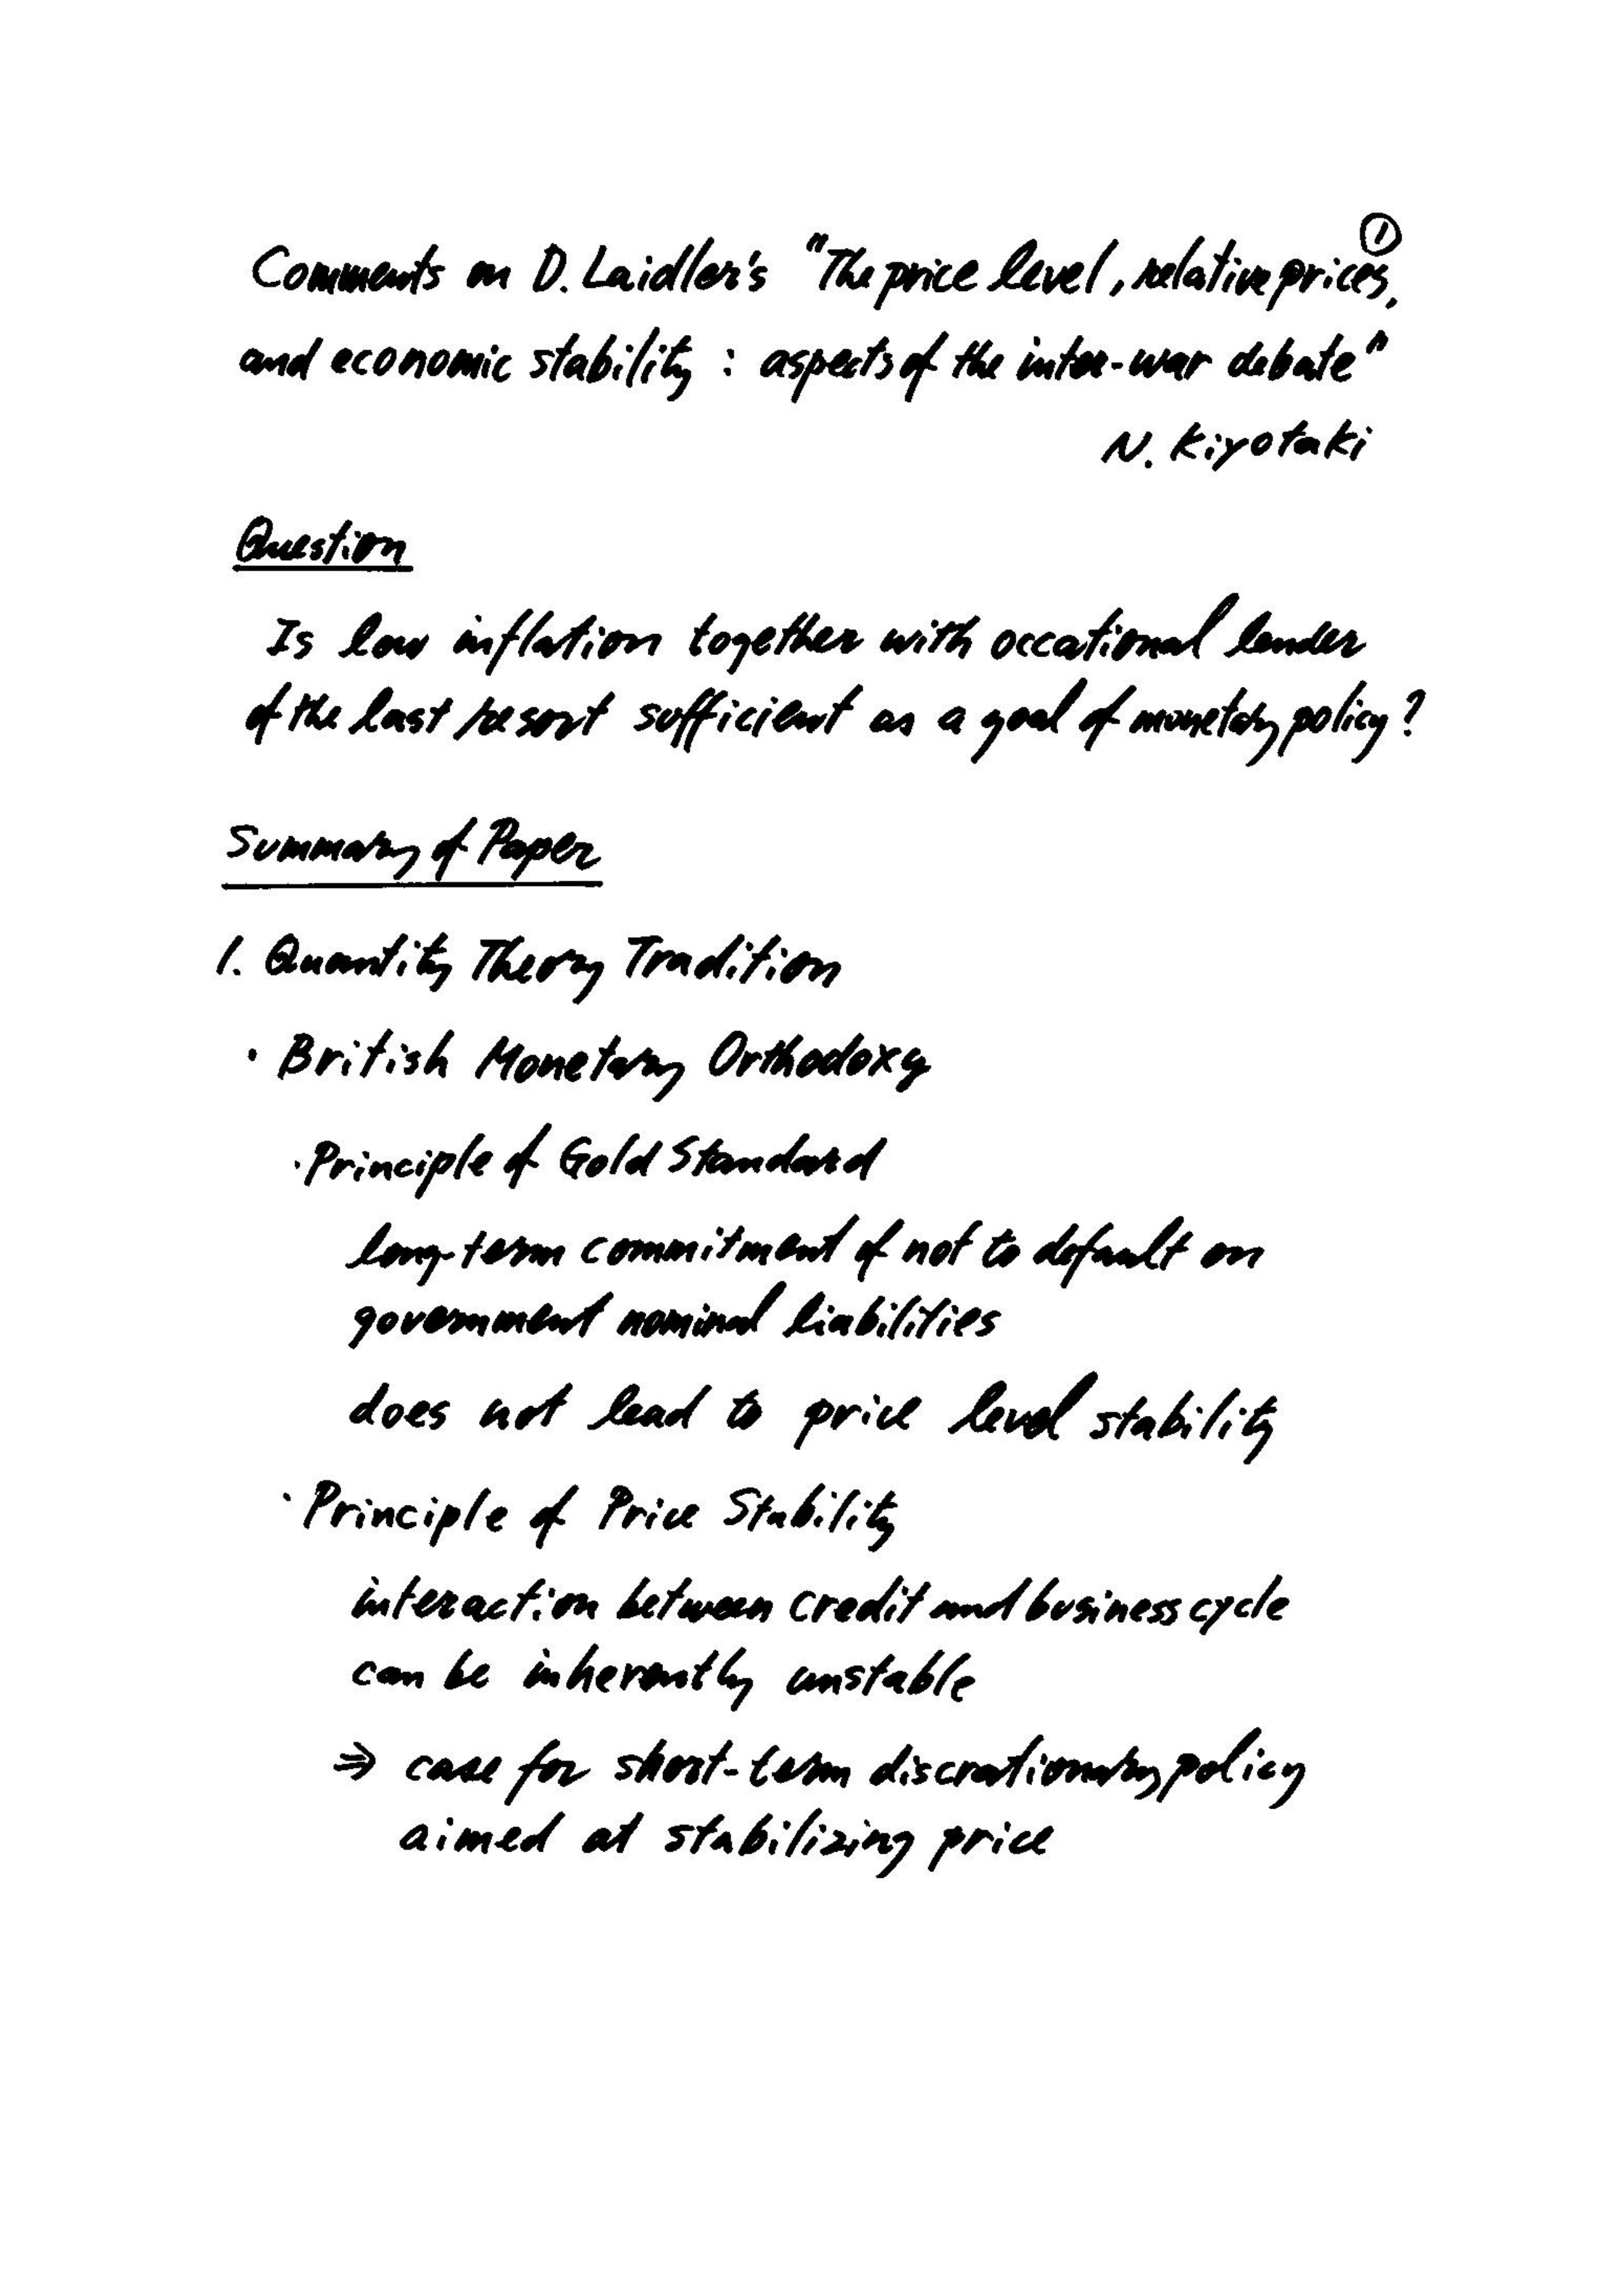 ①
Comments on D. Laidler's "The price level, relative prices,
and economic stability : aspects of the inter-war debate"
N. Kiyotaki
Question
Is low inflation together with occational lender
of the last resort sufficient as a goal of monetary policy?
Summary of Paper
1. Quantity Theory Tradition
· British Monetary Orthodoxy
· Principle of Gold Standard
long-term commitment of not to default on
government nominal liabilities
does not lead to price level stability
· Principle of Price Stability
interaction between credit and business cycle
can be inherently unstable
⇒ case for short-term discretionary policy
aimed at stabilizing price